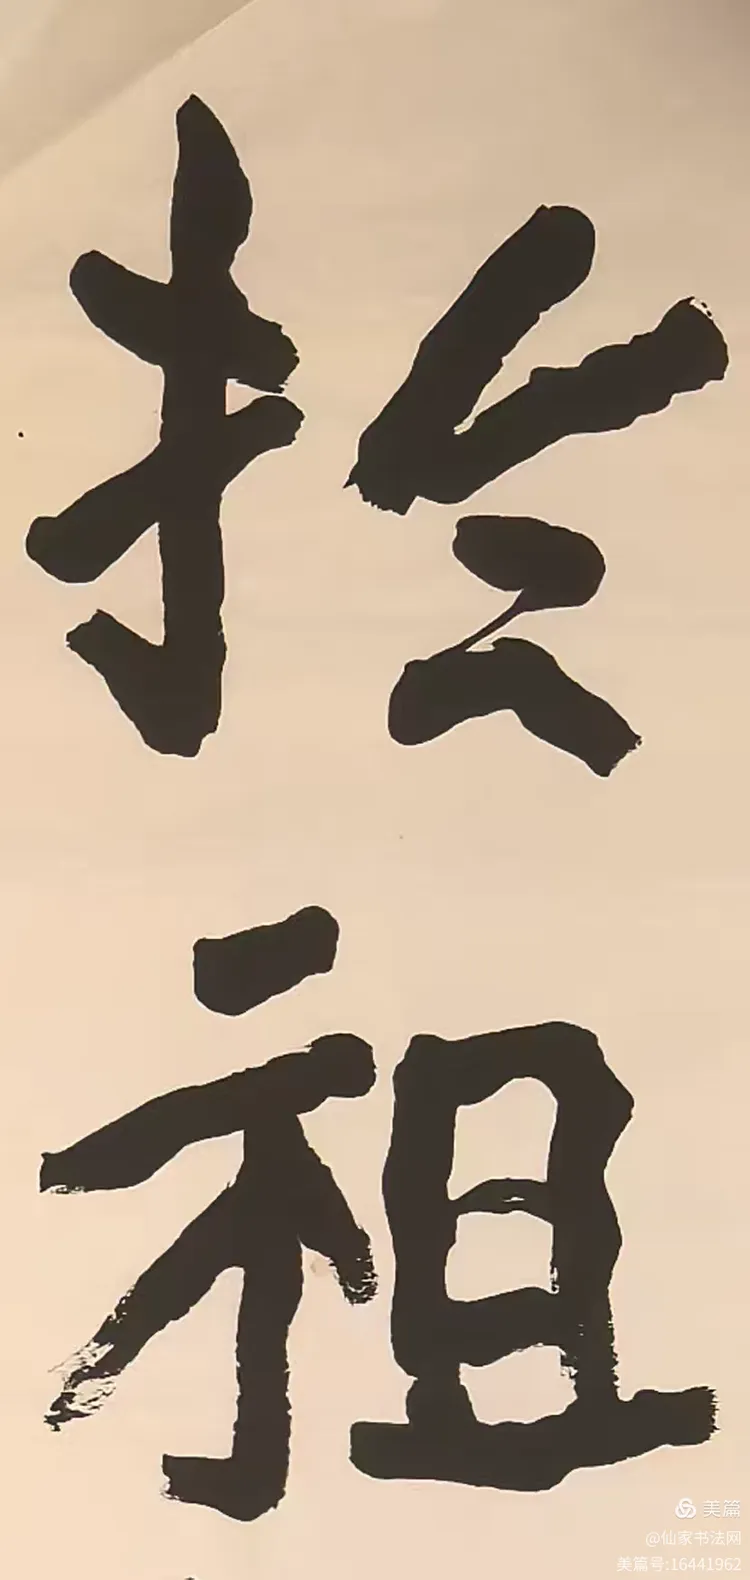 扵祖
美篇
@仙家书法网
美篇号:16441962